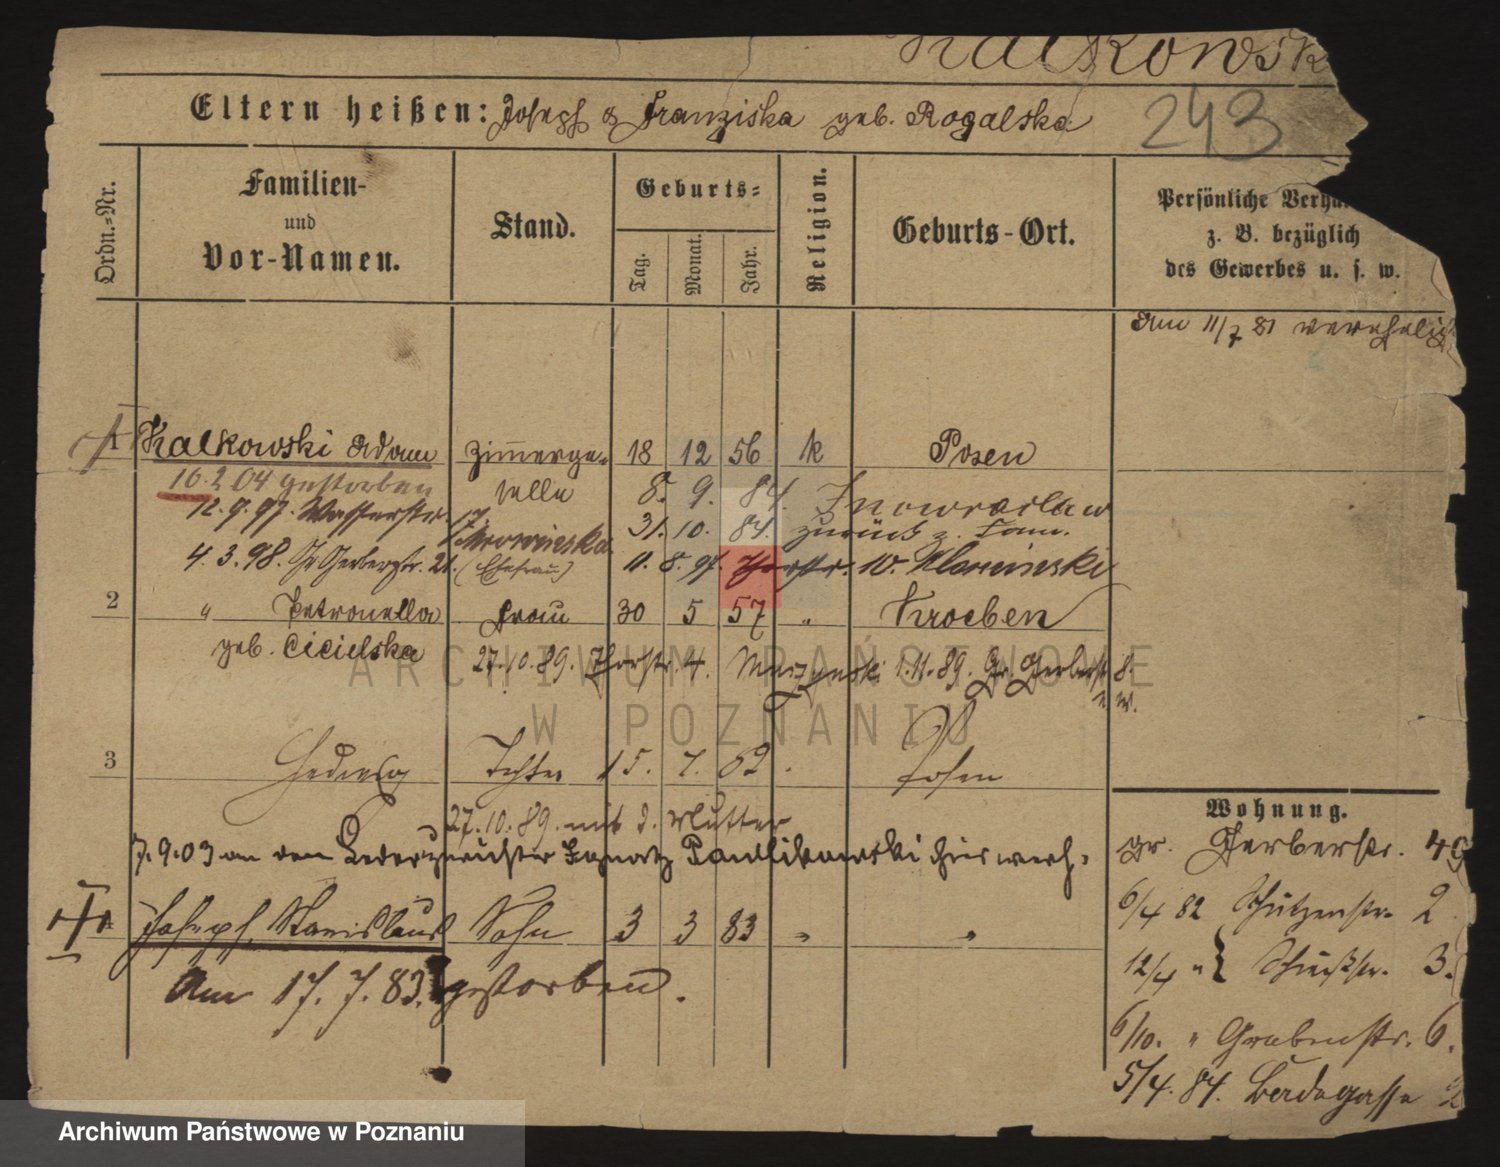 Kalkowsk
Eltern heißen: Joseph & Franziska geb. Rogalska
243
Ordn.-Nr.
Familien-
und
Vor-Namen.
Stand.
Geburts-
Tag.
Monat.
Jahr.
Religion.
Geburts-Ort.
Persönliche Verhä
z. B. bezüglich
des Gewerbes u. s. w.
Am 11/7 81 verehelic
1 Kalkowski Adam Zimmerge- 18 12 56 k Posen
16.2.04 gestorben selle 8. 9. 84. Inowraclaw
12.9.97. Wasserstr. 17. 31. 10. 84. zurück z. Fam.
Mrowinska
4.3.98. Gr Gerberstr. 21. (Ehefrau) 11. 8. 97. 10.
2 " Petronella Frau 30 5 57 " Kroeben
geb. Cicielska
27.10.89. Thorstr. 4. 1.11.89. Gr. Gerberstr 8.
3 Hedwig Tochter 15. 7. 82. Posen
27.10.89. mit d. Mutter
7.9.03 an den Ignatz Pawlikowski hier verh.
4 Joseph, Stanislaus Sohn 3 3 83 " "
Am 17. 7. 83. gestorben.
Wohnung.
gr. Gerberstr. 49
6/4 82 Schützenstr. 2
12/4 " Schießstr. 3.
6/10. " Grabenstr. 6.
5/4. 84. Badegasse 2
ARCHIWUM PAŃSTWOWE
W POZNANIU
Archiwum Państwowe w Poznaniu